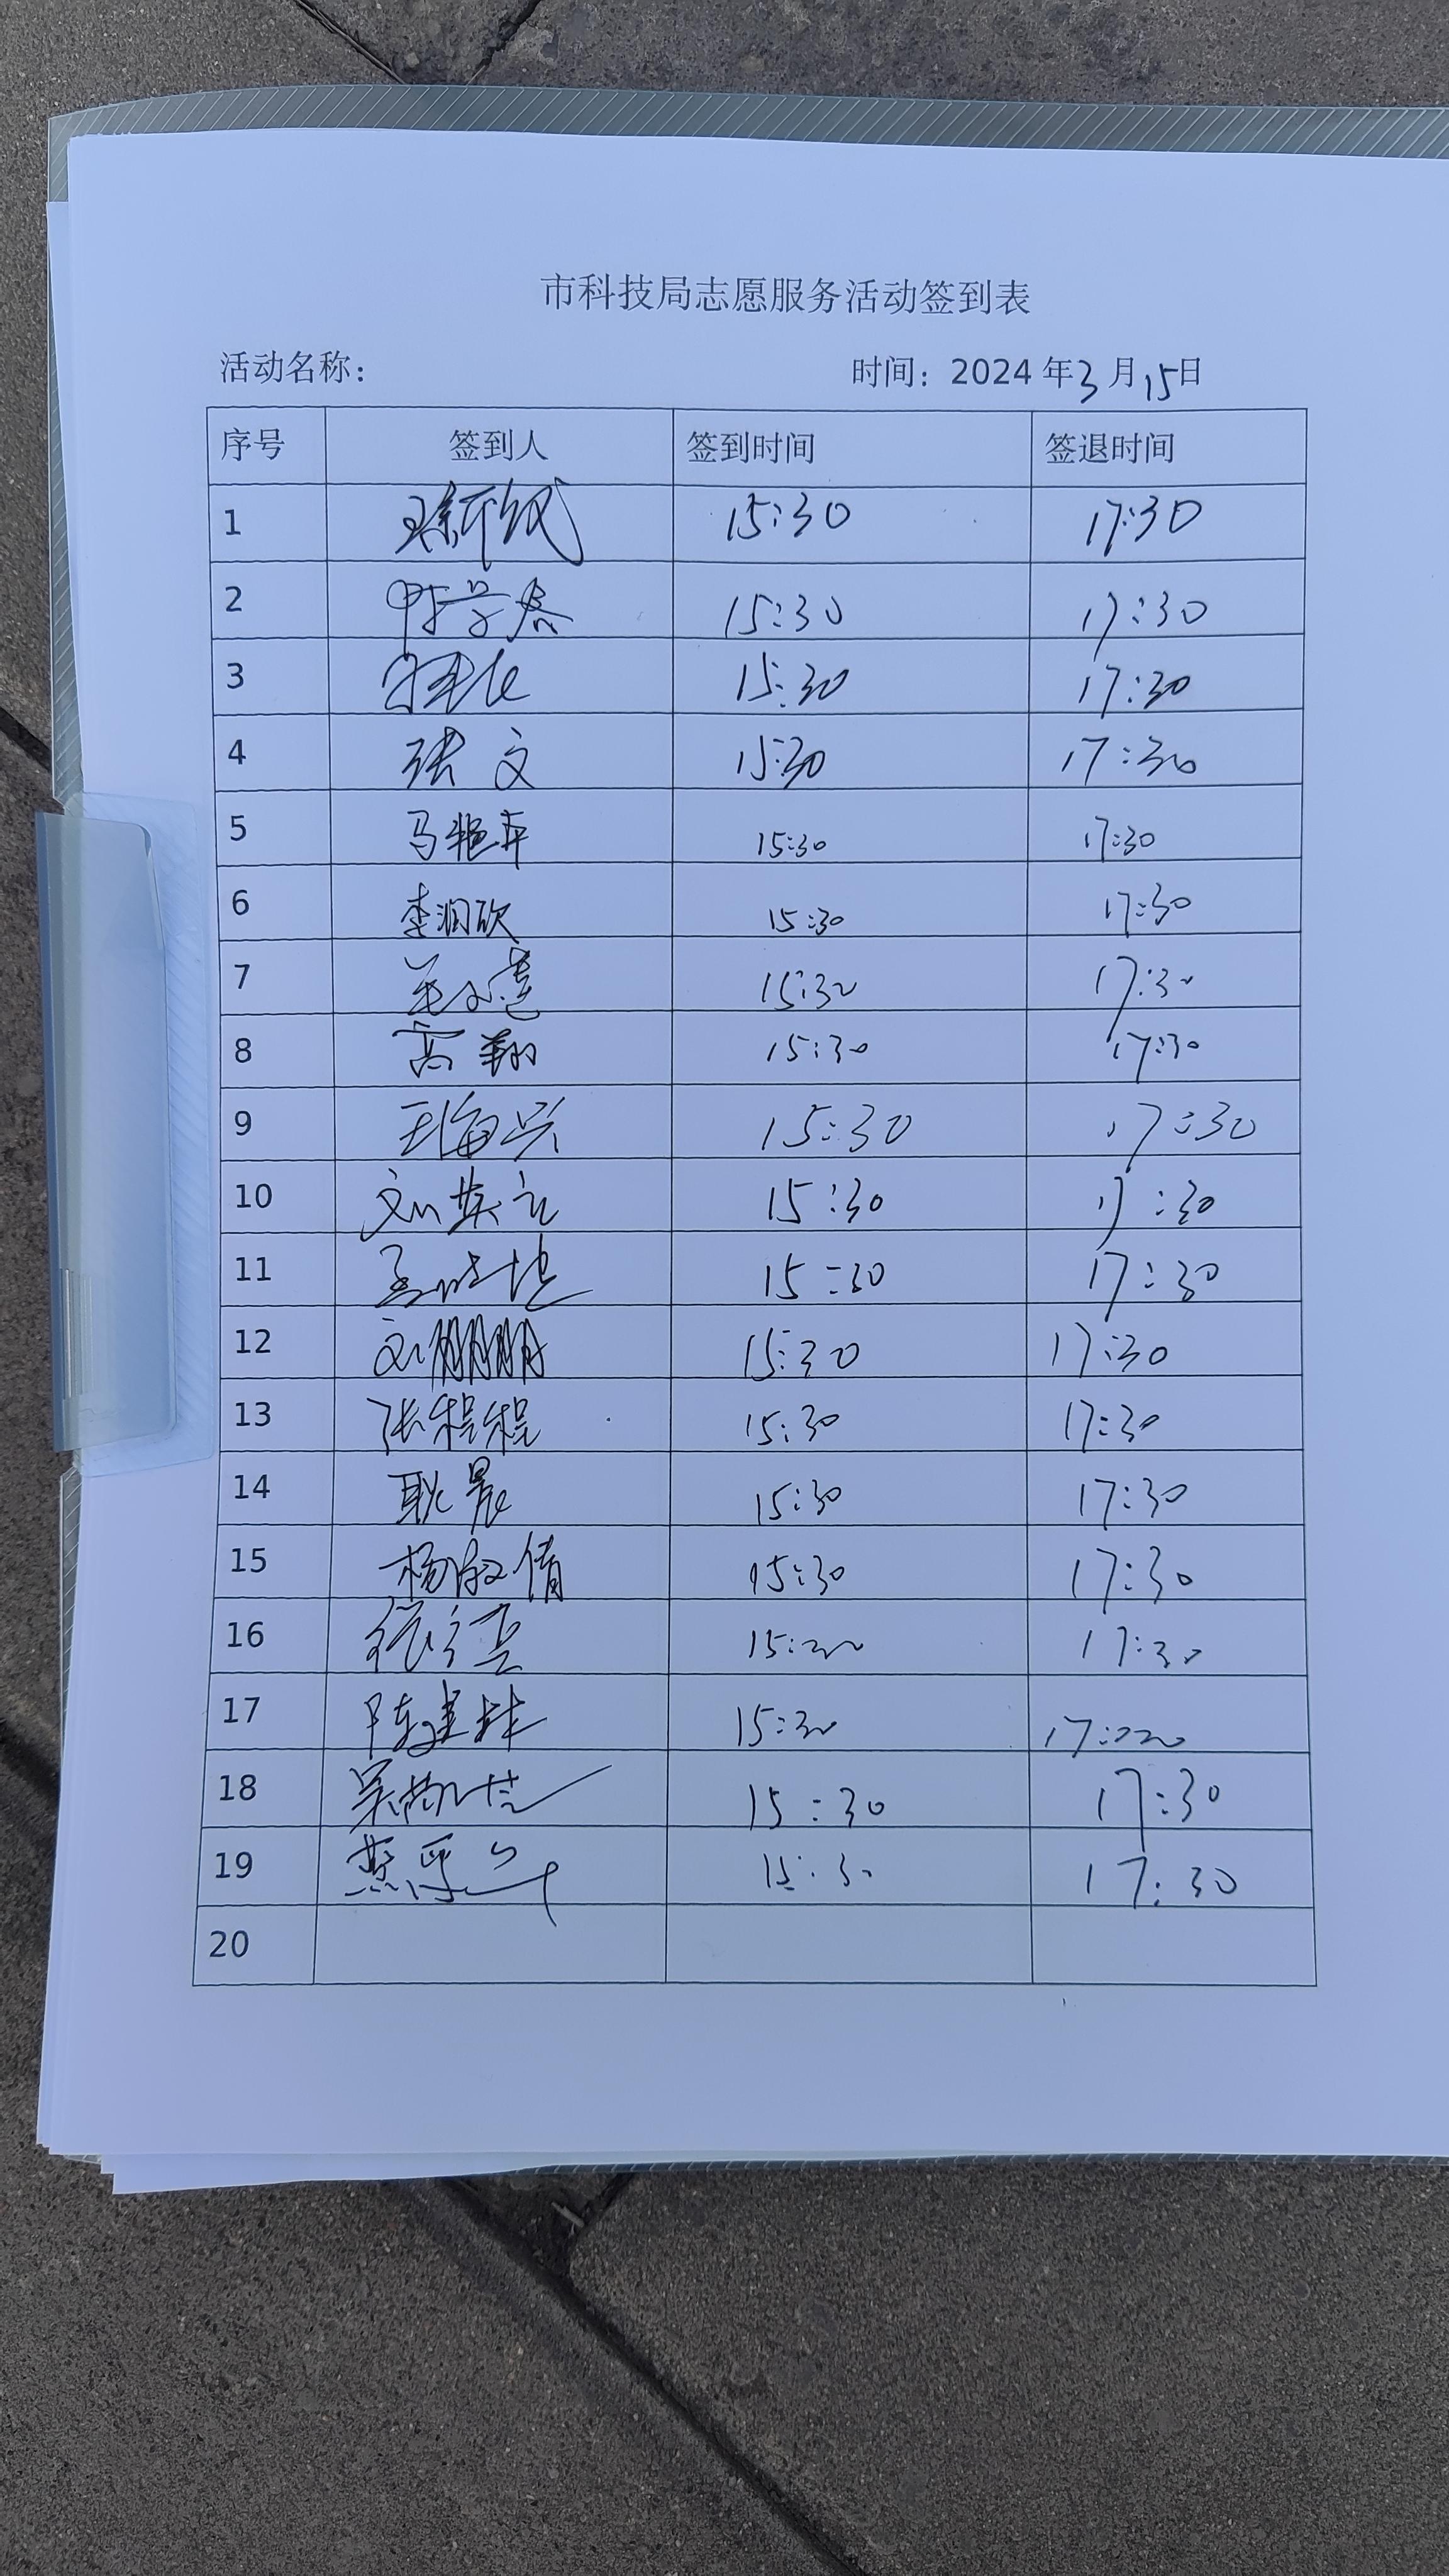 市科技局志愿服务活动签到表
活动名称： 时间：2024 年 3 月 15 日
序号 签到人 签到时间 签退时间
1 15:30 17:30
2 15:30 17:30
3 15:30 17:30
4 张文 15:30 17:30
5 马艳 15:30 17:30
6 李润欣 15:30 17:30
7 15:30 17:30
8 高翔 15:30 17:30
9 王海兴 15:30 17:30
10 刘英 15:30 17:30
11 孟 15:30 17:30
12 刘朋朋 15:30 17:30
13 张程程 15:30 17:30
14 耿晨 15:30 17:30
15 杨淑倩 15:30 17:30
16 15:30 17:30
17 陈建林 15:30 17:30
18 吴 15:30 17:30
19 15:30 17:30
20